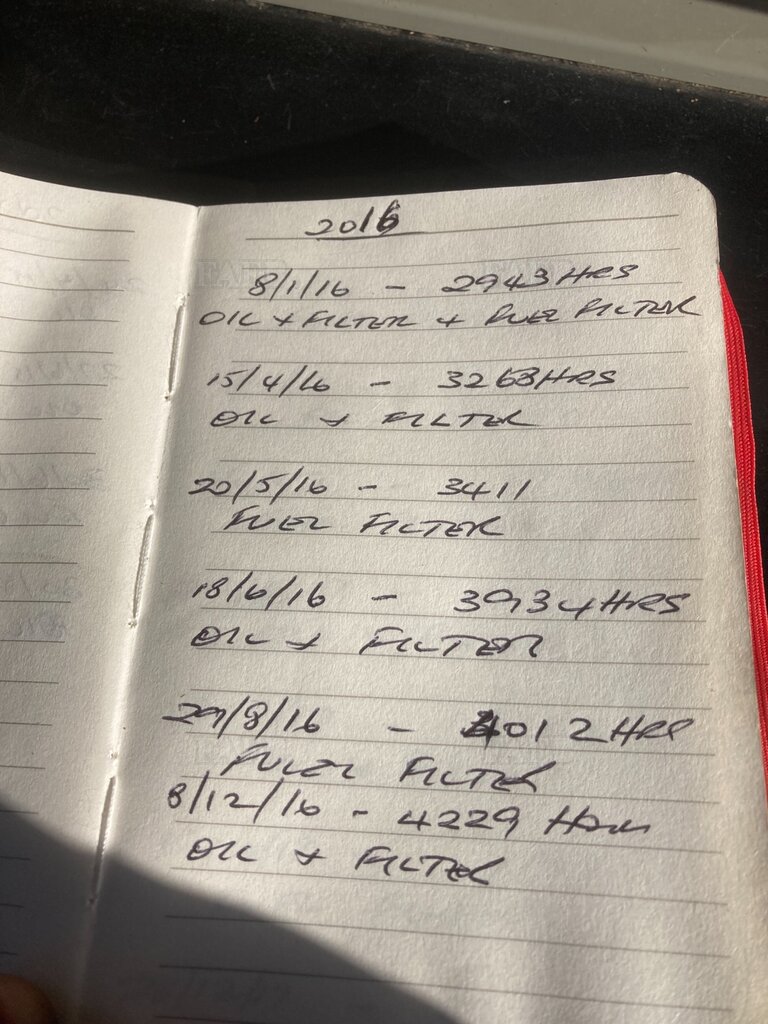 2016
8/1/16 - 2943 HRS
OIL + FILTER + FUEL FILTER
15/4/16 - 3263 HRS
OIL + FILTER
20/5/16 - 3411
FUEL FILTER
18/6/16 - 3934 HRS
OIL + FILTER
29/8/16 - 4012 HRS
FUEL FILTER
8/12/16 - 4229 Hours
OIL + FILTER